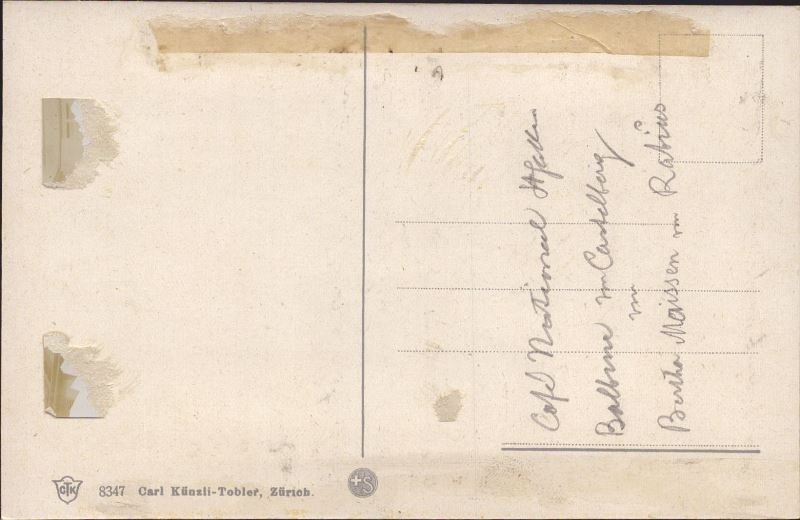 Café National St Gallen
Balbina von Castelberg
von
Bertha Maissen von Rabius
CTK
8347 Carl Künzli-Tobler, Zürich.
+S